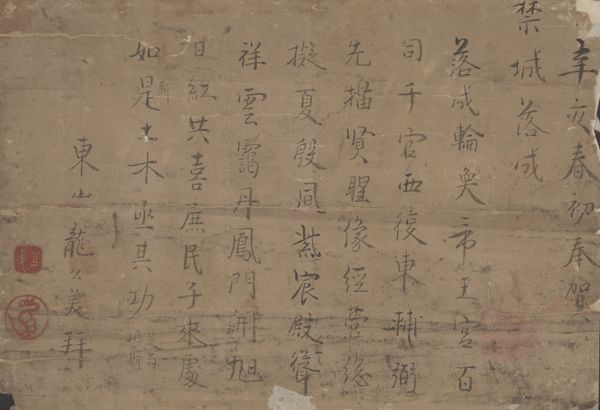 辛亥春初奉賀
禁城落成
落成輪奐帝王宮百
司千官西復東輔弼
先描賢聖像經營總
擬夏殷風紫宸殿聳
祥雲靄丹鳳門開旭
日紅共喜庶民子來處
如是土木亟其功
東山龍公美拜